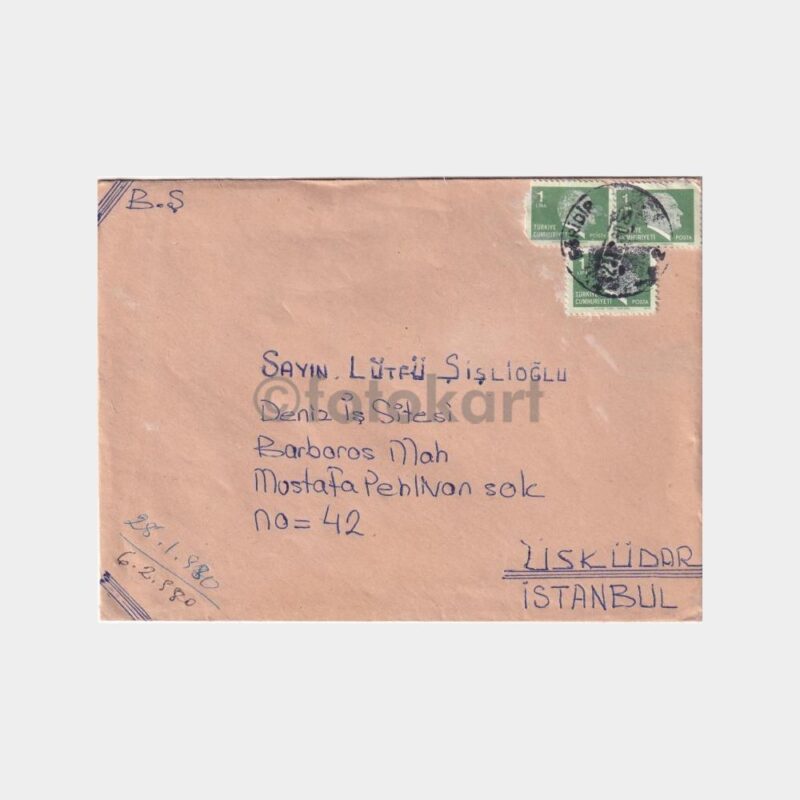 B.Ş
1
LİRA
TÜRKİYE
CUMHURİYETİ
POSTA
1
CUMHURİYETİ
POSTA
1
LİRA
TÜRKİYE
CUMHURİYETİ
POSTA
SAYIN LÜTFÜ ŞİŞLİOĞLU
©fotokart
Deniz İş Sitesi
Barbaros Mah
Mustafa Pehlivan sok
no=42
ÜSKÜDAR
İSTANBUL
28.1.980
6.2.980